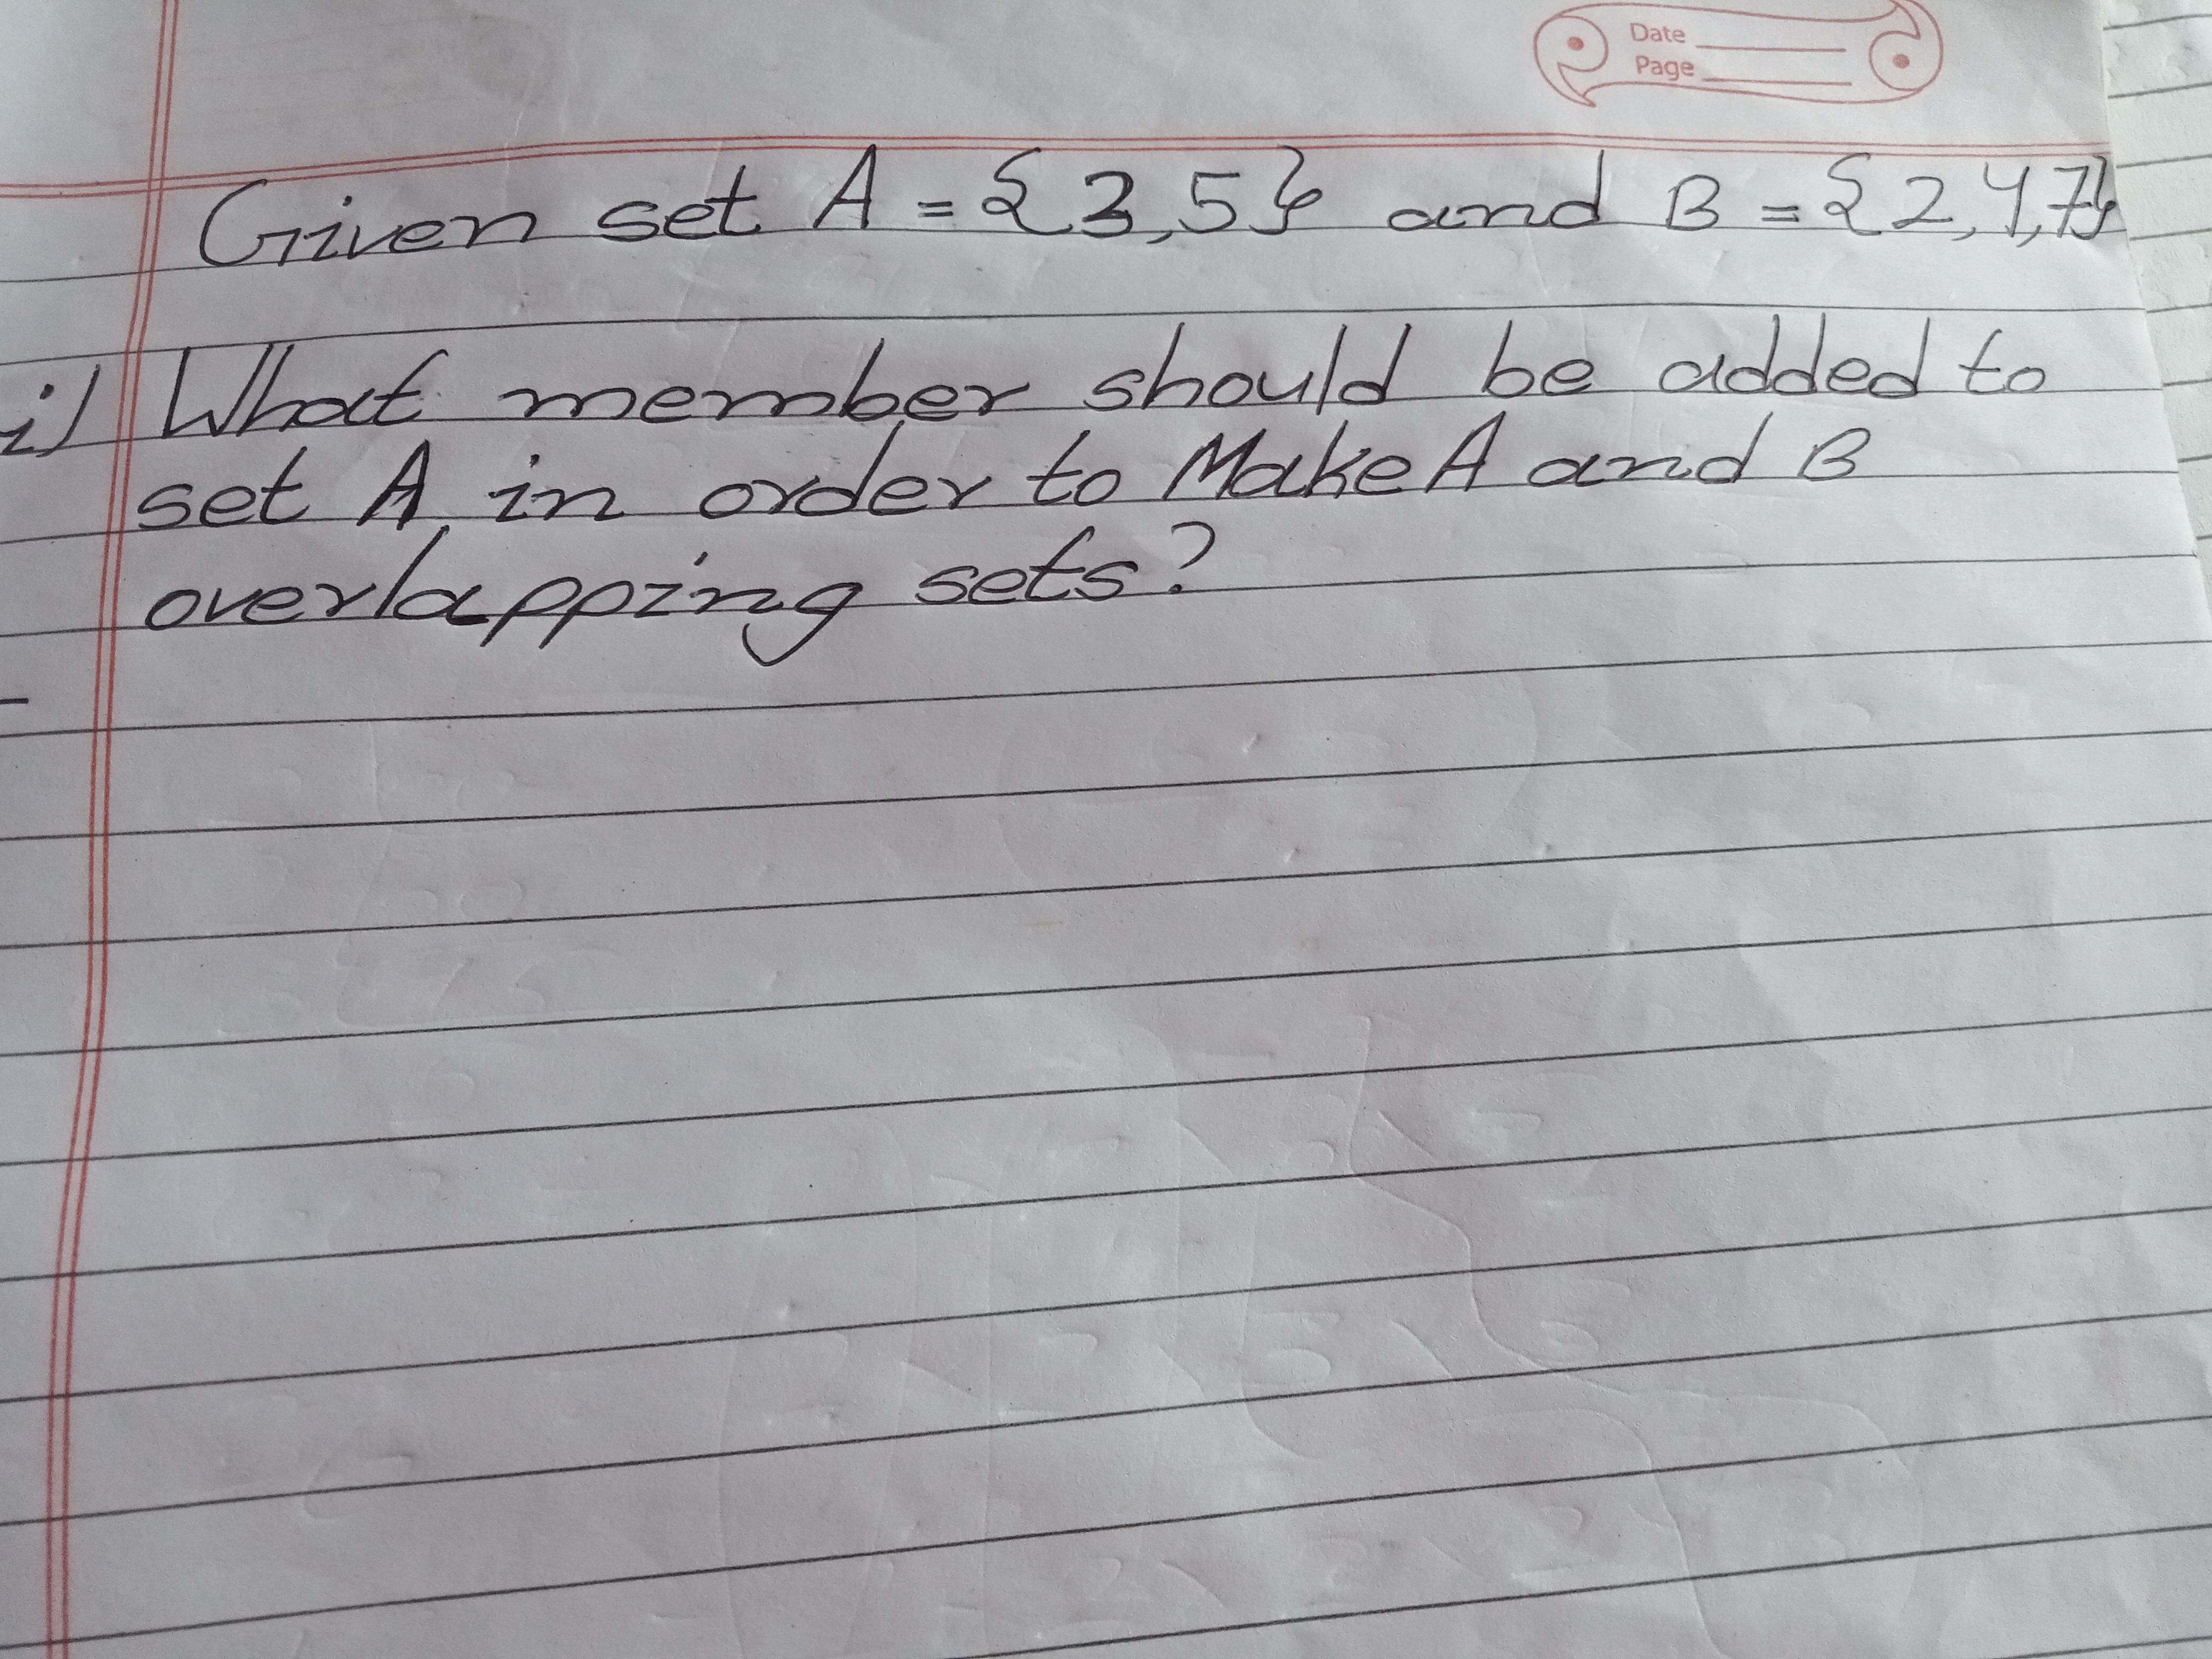 Date
Page
Given set A = {3,5} and B = {2,4,7}
i) What member should be added to
set A in order to Make A and B
overlapping sets?